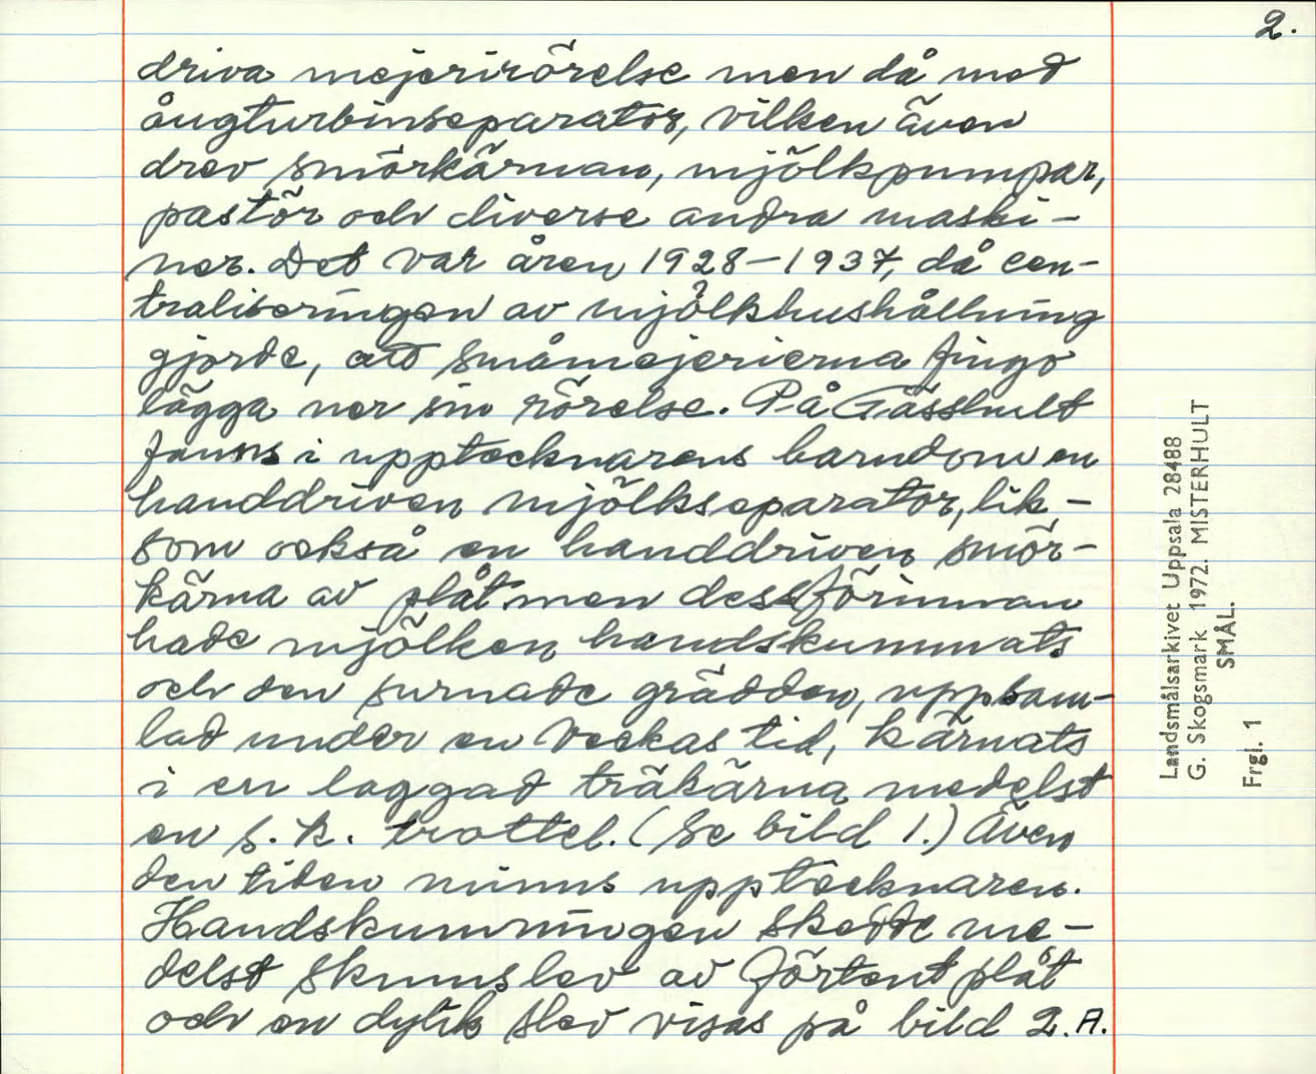 2.
driva mejerirörelse men då med
ångturbinseparator, vilken även
drev smörkärnan, mjölkpumpar,
pastör och diverse andra maski-
ner. Det var åren 1928-1937, då cen-
traliseringen av mjölkhushållning
gjorde, att småmejerierna fingo
lägga ner sin rörelse. På Gässhult
fanns i upptecknarens barndom en
handdriven mjölkseparator, lik-
som också en handdriven smör-
kärna av plåt men dessförinnan
hade mjölken handskummats
och den surnade grädden, uppsam-
lad under en veckas tid, kärnats
i en laggad träkärna medelst
en s.k. trottel. (Se bild 1.) Även
den tiden minns upptecknaren.
Handskumningen skedde me-
delst skumslev av förtent plåt
och en dylik slev visas på bild 2.A.
Landsmålsarkivet Uppsala 28488
G. Skogsmark 1972. MISTERHULT
SMÅL.
Frgl. 1